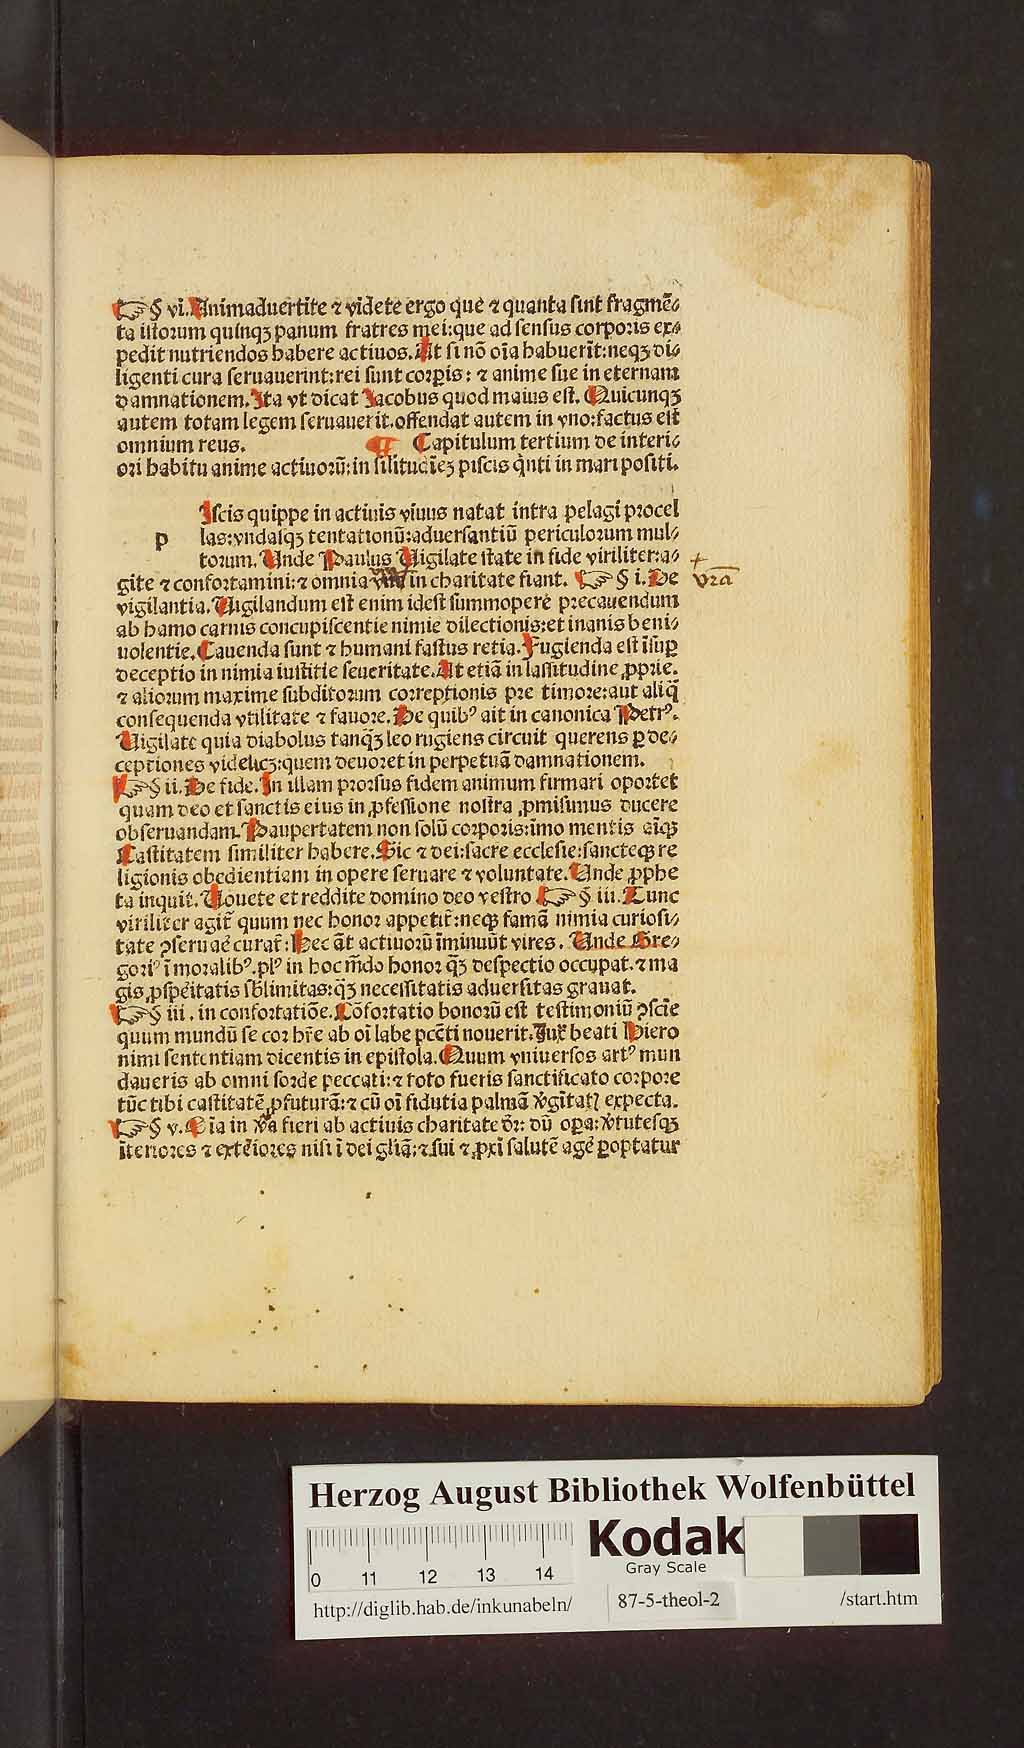 ☞ § vi. Animaduertite ⁊ videte ergo que ⁊ quanta sint fragmē⸗
ta istorum quinqꝫ panum fratres mei:que ad sensus corporis ex⸗
pedit nutriendos habere actiuos. At si nō oīa habuerīt:neqꝫ di⸗
ligenti cura seruauerint:rei sunt corꝑis: ⁊ anime sue in eternam
damnationem. Ita vt dicat Jacobus quod maius est. Quicunqꝫ
autem totam legem seruauerit. offendat autem in vno:factus est
omnium reus. ¶ Capitulum tertium de interi⸗
ori habitu anime actiuorū: in silitudīeꝫ piscis qͥnti in mari positi.
p Iscis quippe in actiuis viuus natat intra pelagi procel
las:vndasqꝫ tentationū:aduersantiū periculorum mul⸗
torum. Unde Paulus Uigilate state in fide viriliter:a⸗
gite ⁊ confortamini: ⁊ omnia in charitate fiant. ☞ § i. De
vr̄a
vigilantia. Uigilandum est enim idest summopere precauendum
ab hamo carnis concupiscentie nimie dilectionis:et inanis beni⸗
uolentie. Cauenda sunt ⁊ humani fastus retia. Fugienda est īsuꝑ
deceptio in nimia iustitie seueritate. At etiā in lassitudine ꝓprie.
⁊ aliorum maxime subditorum correptionis pre timore:aut aliq̄
consequenda vtilitate ⁊ fauore. De quibꝰ ait in canonica Petrꝰ.
Uigilate quia diabolus tanqꝫ leo rugiens circuit querens ꝑ de⸗
ceptiones videlicꝫ:quem deuoret in perpetuā damnationem.
☞ § ii. De fide. In illam prorsus fidem animum firmari oportet
quam deo et sanctis eius in ꝓfessione nostra ꝓmisimus ducere
obseruandam. Paupertatem non solū corporis:īmo mentis eīqꝫ
Castitatem similiter habere. Sic ⁊ dei:sacre ecclesie:sancteqꝫ re
ligionis obedientiam in opere seruare ⁊ voluntate. Unde ꝓphe
ta inquit. Uouete et reddite domino deo vestro ☞ § iii. Tunc
viriliter agit̄ quum nec honor appetit̄:neqꝫ famā nimia curiosi⸗
tate ꝯseruaē curat̄: Hec āt actiuorū īminuūt vires. Unde Gre⸗
goriꝰ ī moralibꝰ. plꝰ in hoc mūdo honor qꝫ despectio occupat. ⁊ ma
gis ꝓspeitatis sblimitas:qꝫ necessitatis aduersitas grauat.
☞ § iii . in confortatiōe. Cōfortatio bonorū est testimoniū ꝯscīe
quum mundū se cor hr̄e ab oī labe pccti nouerit. Jux̄ beati Hiero
nimi sententiam dicentis in epistola. Quum vniuersos artꝰ mun
daueris ab omni sorde peccati: ⁊ toto fueris sanctificato corpore
tūc tibi castitatē ꝓfuturā: ⁊ cū oī fidutia palmā vͦgītatꝭ expecta.
☞ § v. Oīa in vr̄a fieri ab actiuis charitate dr̄: dū oꝑa: vͦtutesqꝫ
īteriores ⁊ exteiores nisi ī dei gl̄iā: ⁊ sui ⁊ ꝓxī salutē agē ꝑoptatur
Herzog August Bibliothek Wolfenbüttel
Kodak
Gray Scale
0 11 12 13 14
http://diglib.hab.de/inkunabeln/ 87-5-theol-2 /start.htm